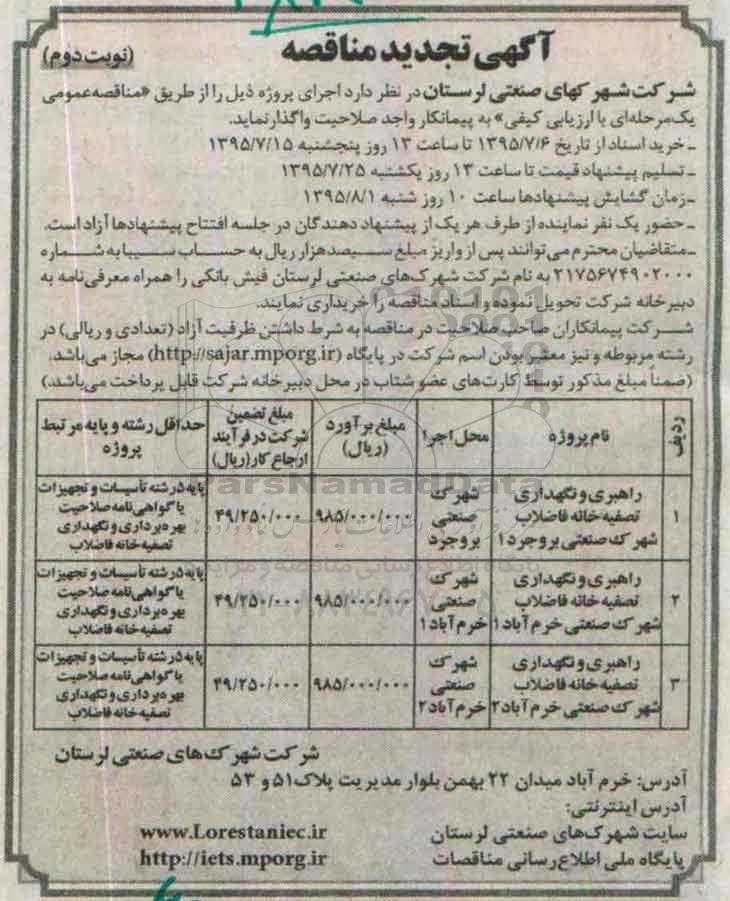 آگهی تجدید مناقصه
(نوبت دوم)
شرکت شهرکهای صنعتی لرستان در نظر دارد اجرای پروژه ذیل را از طریق «مناقصه عمومی
یک‌مرحله‌ای با ارزیابی کیفی» به پیمانکار واجد صلاحیت واگذار نماید.
ـ خرید اسناد از تاریخ ۱۳۹۵/۷/۶ تا ساعت ۱۳ روز پنجشنبه ۱۳۹۵/۷/۱۵
ـ تسلیم پیشنهاد قیمت تا ساعت ۱۳ روز یکشنبه ۱۳۹۵/۷/۲۵
ـ زمان گشایش پیشنهادها ساعت ۱۰ روز شنبه ۱۳۹۵/۸/۱
ـ حضور یک نفر نماینده از طرف هر یک از پیشنهاد دهندگان در جلسه افتتاح پیشنهادها آزاد است.
ـ متقاضیان محترم می‌توانند پس از واریز مبلغ سیصد هزار ریال به حساب سیبا به شماره
۲۱۷۵۶۷۴۹۰۲۰۰۰ به نام شرکت شهرک‌های صنعتی لرستان فیش بانکی را همراه معرفی‌نامه به
دبیرخانه شرکت تحویل نموده و اسناد مناقصه را خریداری نمایند.
شرکت پیمانکاران صاحب صلاحیت در مناقصه به شرط داشتن ظرفیت آزاد (تعدادی و ریالی) در
رشته مربوطه و نیز معتبر بودن اسم شرکت در پایگاه (http://sajar.mporg.ir) مجاز می‌باشد.
(ضمناً مبلغ مذکور توسط کارت‌های عضو شتاب در محل دبیرخانه شرکت قابل پرداخت می‌باشد.)
ردیف
نام پروژه
محل اجرا
مبلغ برآورد
(ریال)
مبلغ تضمین
شرکت در فرآیند
ارجاع کار (ریال)
حداقل رشته و پایه مرتبط
پروژه
۱
راهبری و نگهداری
تصفیه خانه فاضلاب
شهرک صنعتی بروجرد ۱
شهرک
صنعتی
بروجرد
۹۸۵/۰۰۰/۰۰۰
۴۹/۲۵۰/۰۰۰
پایه ۵ رشته تأسیسات و تجهیزات
یا گواهی نامه صلاحیت
بهره برداری و نگهداری
تصفیه خانه فاضلاب
۲
راهبری و نگهداری
تصفیه خانه فاضلاب
شهرک صنعتی خرم آباد ۱
شهرک
صنعتی
خرم آباد ۱
۹۸۵/۰۰۰/۰۰۰
۴۹/۲۵۰/۰۰۰
پایه ۵ رشته تأسیسات و تجهیزات
یا گواهی نامه صلاحیت
بهره برداری و نگهداری
تصفیه خانه فاضلاب
۳
راهبری و نگهداری
تصفیه خانه فاضلاب
شهرک صنعتی خرم آباد ۲
شهرک
صنعتی
خرم آباد ۲
۹۸۵/۰۰۰/۰۰۰
۴۹/۲۵۰/۰۰۰
پایه ۵ رشته تأسیسات و تجهیزات
یا گواهی نامه صلاحیت
بهره برداری و نگهداری
تصفیه خانه فاضلاب
ParsNamadData
شرکت شهرک‌های صنعتی لرستان
آدرس: خرم آباد میدان ۲۲ بهمن بلوار مدیریت پلاک ۵۱ و ۵۳
آدرس اینترنتی:
سایت شهرک‌های صنعتی لرستان www.Lorestaniec.ir
پایگاه ملی اطلاع رسانی مناقصات http://iets.mporg.ir